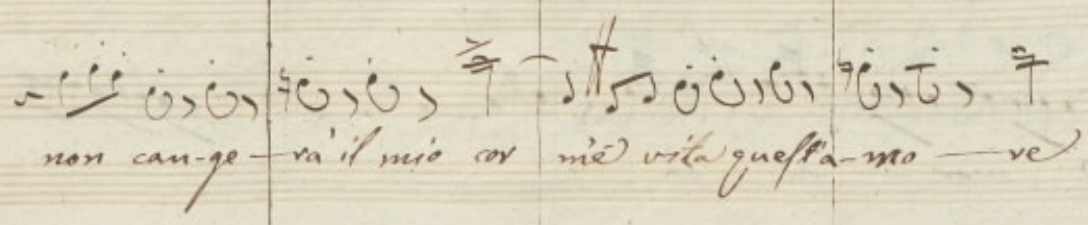 non can-ge-rà il mio cor m'è vita quest'a-mo-re